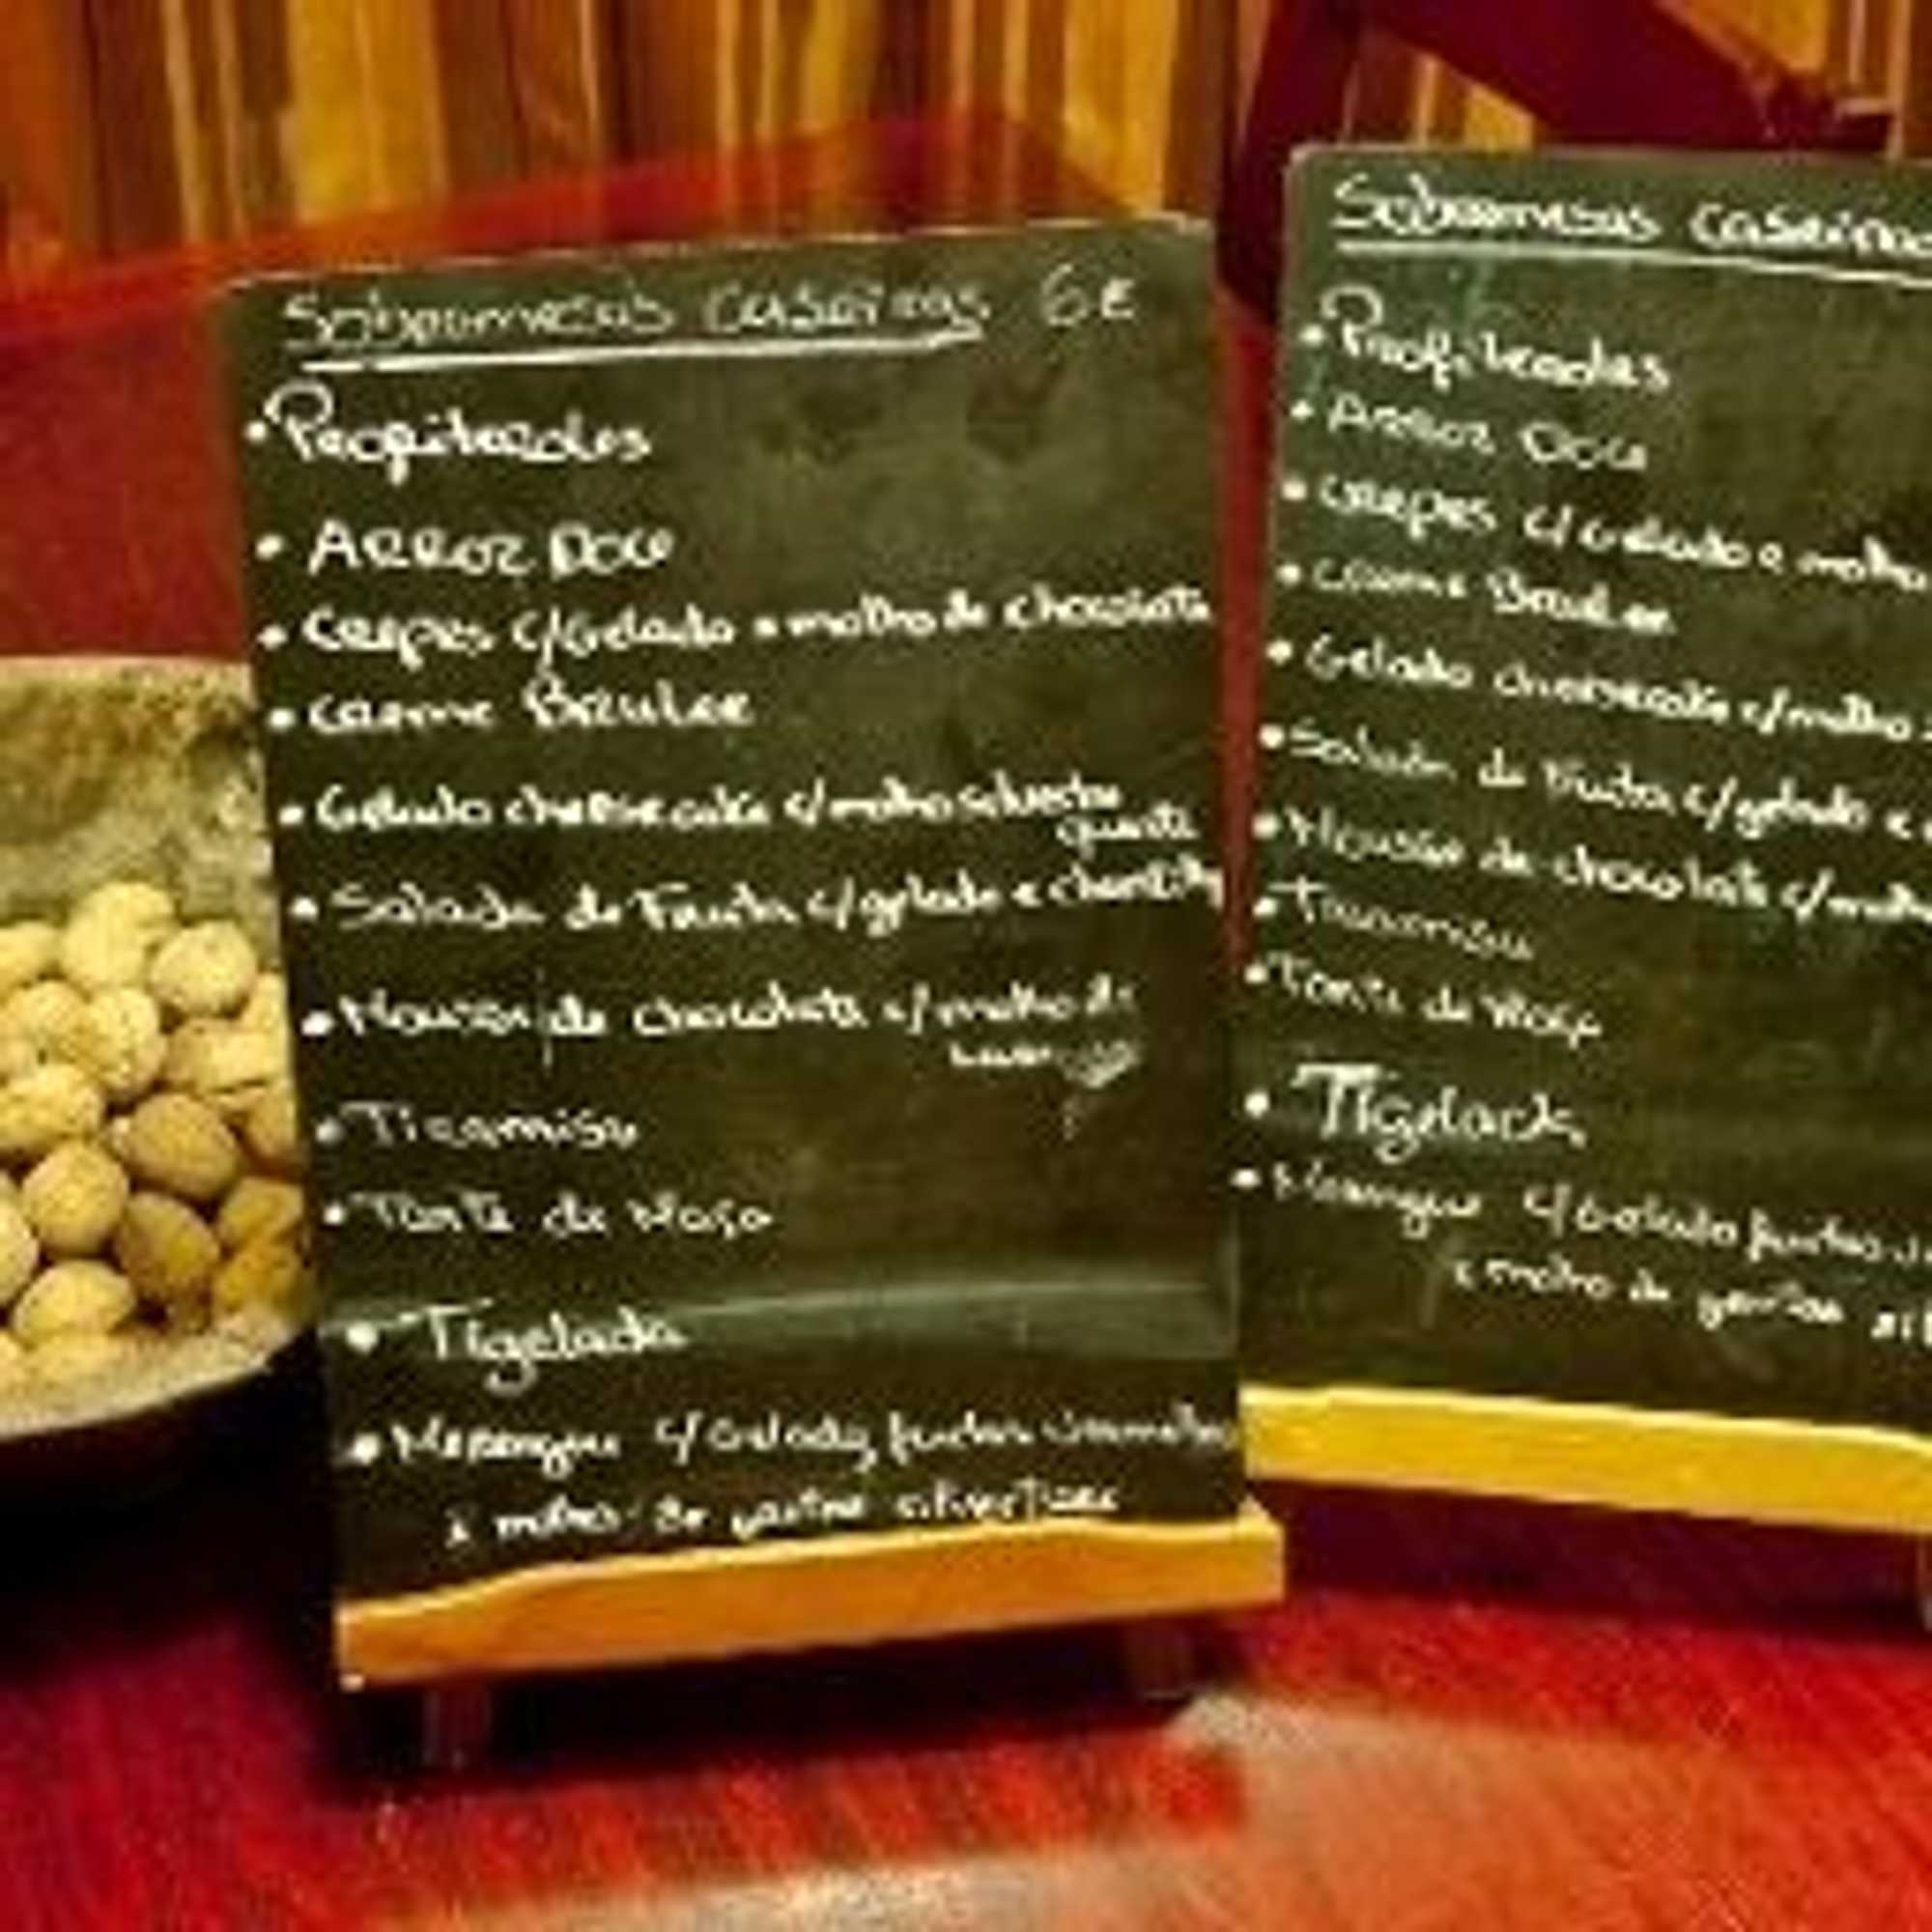 Sobremesas caseiras 6€
• Profiteroles
• Arroz Doce
• Crepes c/Gelado e molho de chocolate
• Creme Brulee
• Gelado cheesecake c/molho silvestre
quente
• Salada de Fruta c/gelado e chantilly
• Mousse de chocolate c/molho de
• Tiramisu
• Tarte de Maça
• Tigelada
• Merengue c/Gelado frutos vermelhos
e molho de
Sobremesas caseiras
• Profiteroles
• Arroz Doce
• Crepes c/Gelado e molho
• Creme Brulee
• Gelado cheesecake c/molho
• Salada de Fruta c/gelado e
• Mousse de chocolate c/molho
• Tiramisu
• Tarte de Maça
• Tigelada
• Merengue c/Gelado frutos
e molho de